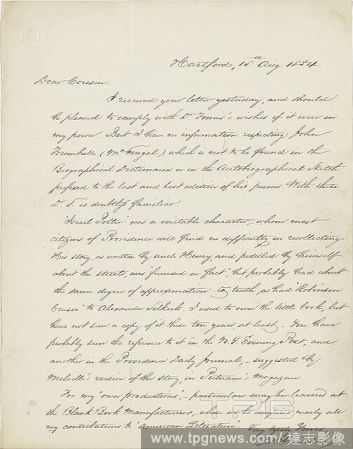 Hartford, 15th Aug. 1854.
Dear Cousin,
I received your letter yesterday, and should
be pleased to comply with Dr wishes if it were in
my power. But I have no information respecting John
Trumbull (McFingal) which is not to be found in the
Biographical Dictionaries or in the Autobiographical Sketch
prefixed to the last and best edition of his poems. With these
Dr. is doubtless familiar.
Israel Potter was a veritable character, whom most
citizens of Providence will find no difficulty in recollecting.
His story, as written by uncle Henry and peddled by himself
about the streets, was founded on fact, but probably had about
the same degree of approximation to truth, as had Robinson
Crusoe to Alexander Selkirk. I used to own the little book, but
have not seen a copy of it these ten years, at least. You have
probably seen the reference to it in the N.Y. Evening Post, and
another in the Providence Daily Journal, suggested by
Melville's version of the story, in Putnam's Magazine
For my own productions, particulars may be learned at
the Blank Book Manufacturers, nearly all
my contributions to "American Literature".
Yours
www.tpgnews.com 達志影像